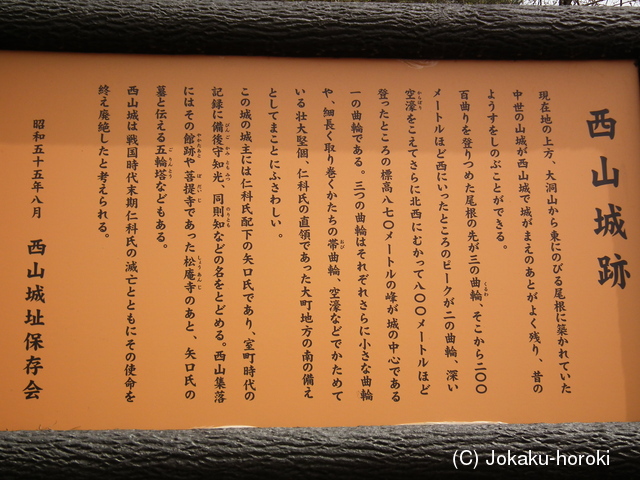 西山城跡
現在地の上方、大洞山から東にのびる尾根に築かれていた
中世の山城が西山城で城がまえのあとがよく残り、昔の
ようすをしのぶことができる。
百曲りを登りつめた尾根の先が三の曲輪、そこから二〇〇
メートルほど西にいったところのピークが二の曲輪、深い
空濠をこえてさらに北西にむかって八〇〇メートルほど
登ったところの標高八七〇メートルの峰が城の中心である
一の曲輪である。三つの曲輪はそれぞれさらに小さな曲輪
や、細長く取り巻くかたちの帯曲輪、空濠などでかためて
いる壮大堅個、仁科氏の直領であった大町地方の南の備え
としてまことにふさわしい。
この城の城主には仁科氏配下の矢口氏であり、室町時代の
記録に備後守知光、同則知などの名をとどめる。西山集落
にはその館跡や菩提寺であった松庵寺のあと、矢口氏の
墓と伝える五輪塔などもある。
西山城は戦国時代末期仁科氏の滅亡とともにその使命を
終え廃絶したと考えられる。
昭和五十五年八月 西山城址保存会
(C) Jokaku-horoki